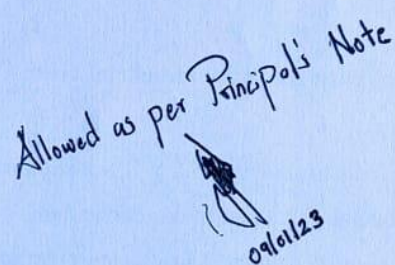 Allowed as per Principal's Note
09/01/23